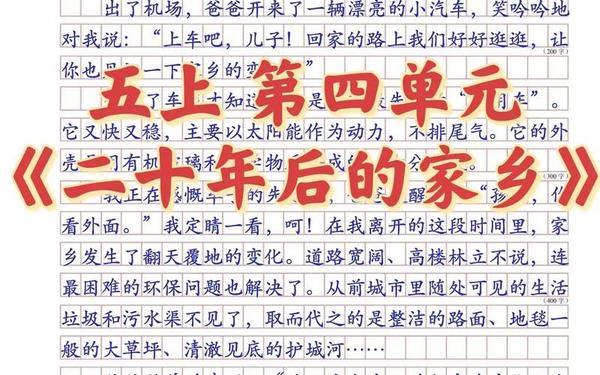 出了机场，爸爸开来了一辆漂亮的小汽车，笑吟吟地
对我说：“上车吧，儿子！回家的路上我们好好逛逛，让
(200字)
你也见 一下家乡的变 ”
五上 第四单元
了车 才知道 是 先 车”。
它又快又稳，主要以太阳能作为动力，不排尾气。它的外
壳 用有机 璃和 学物 成
《二十年后的家乡》
(300字)
我正在感慨 的先 爸爸 醒 “孩 你
看外面。”我定睛一看，呵！在我离开的这段时间里，家
乡发生了翻天覆地的变化。道路宽阔、高楼林立不说，连
最困难的环保问题也解决了。从前城市里随处可见的生活
(400字)
垃圾和污水渠不见了，取而代之的是整洁的路面、地毯一
般的大草坪、清澈见底的护城河……